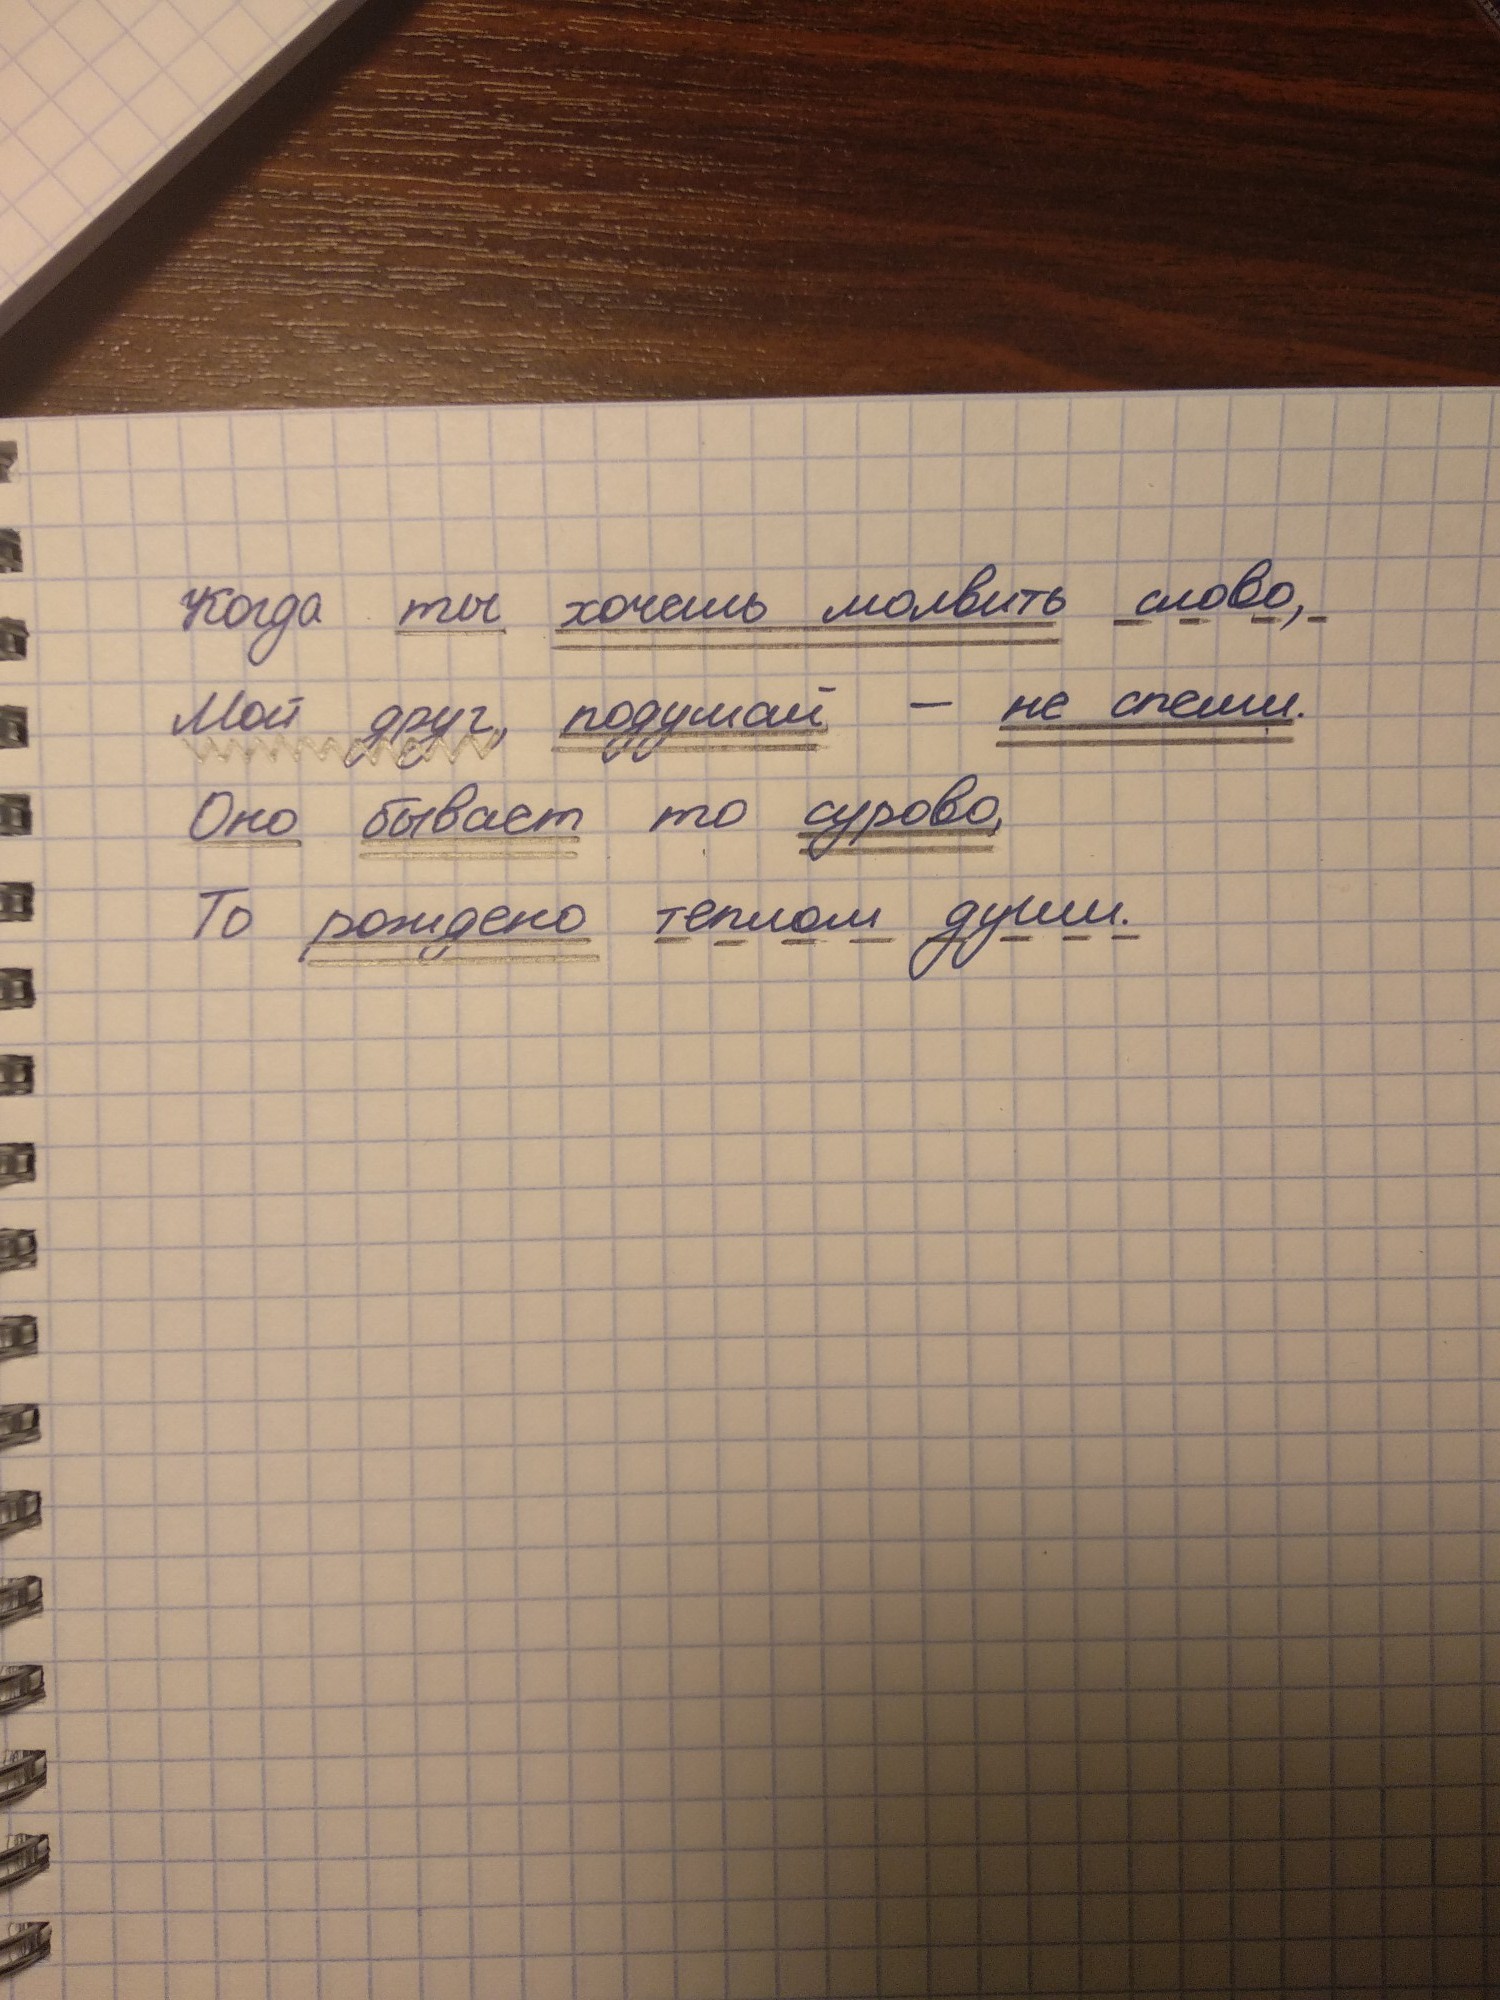 Когда ты хочешь молвить слово,
Мой друг, подумай – не спеши.
Оно бывает то сурово,
То рождено теплом души.